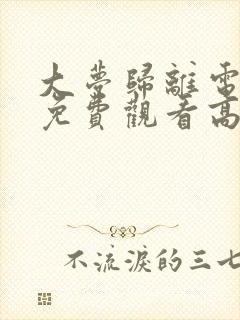 大夢歸離電
免費觀看高
不流淚的三七